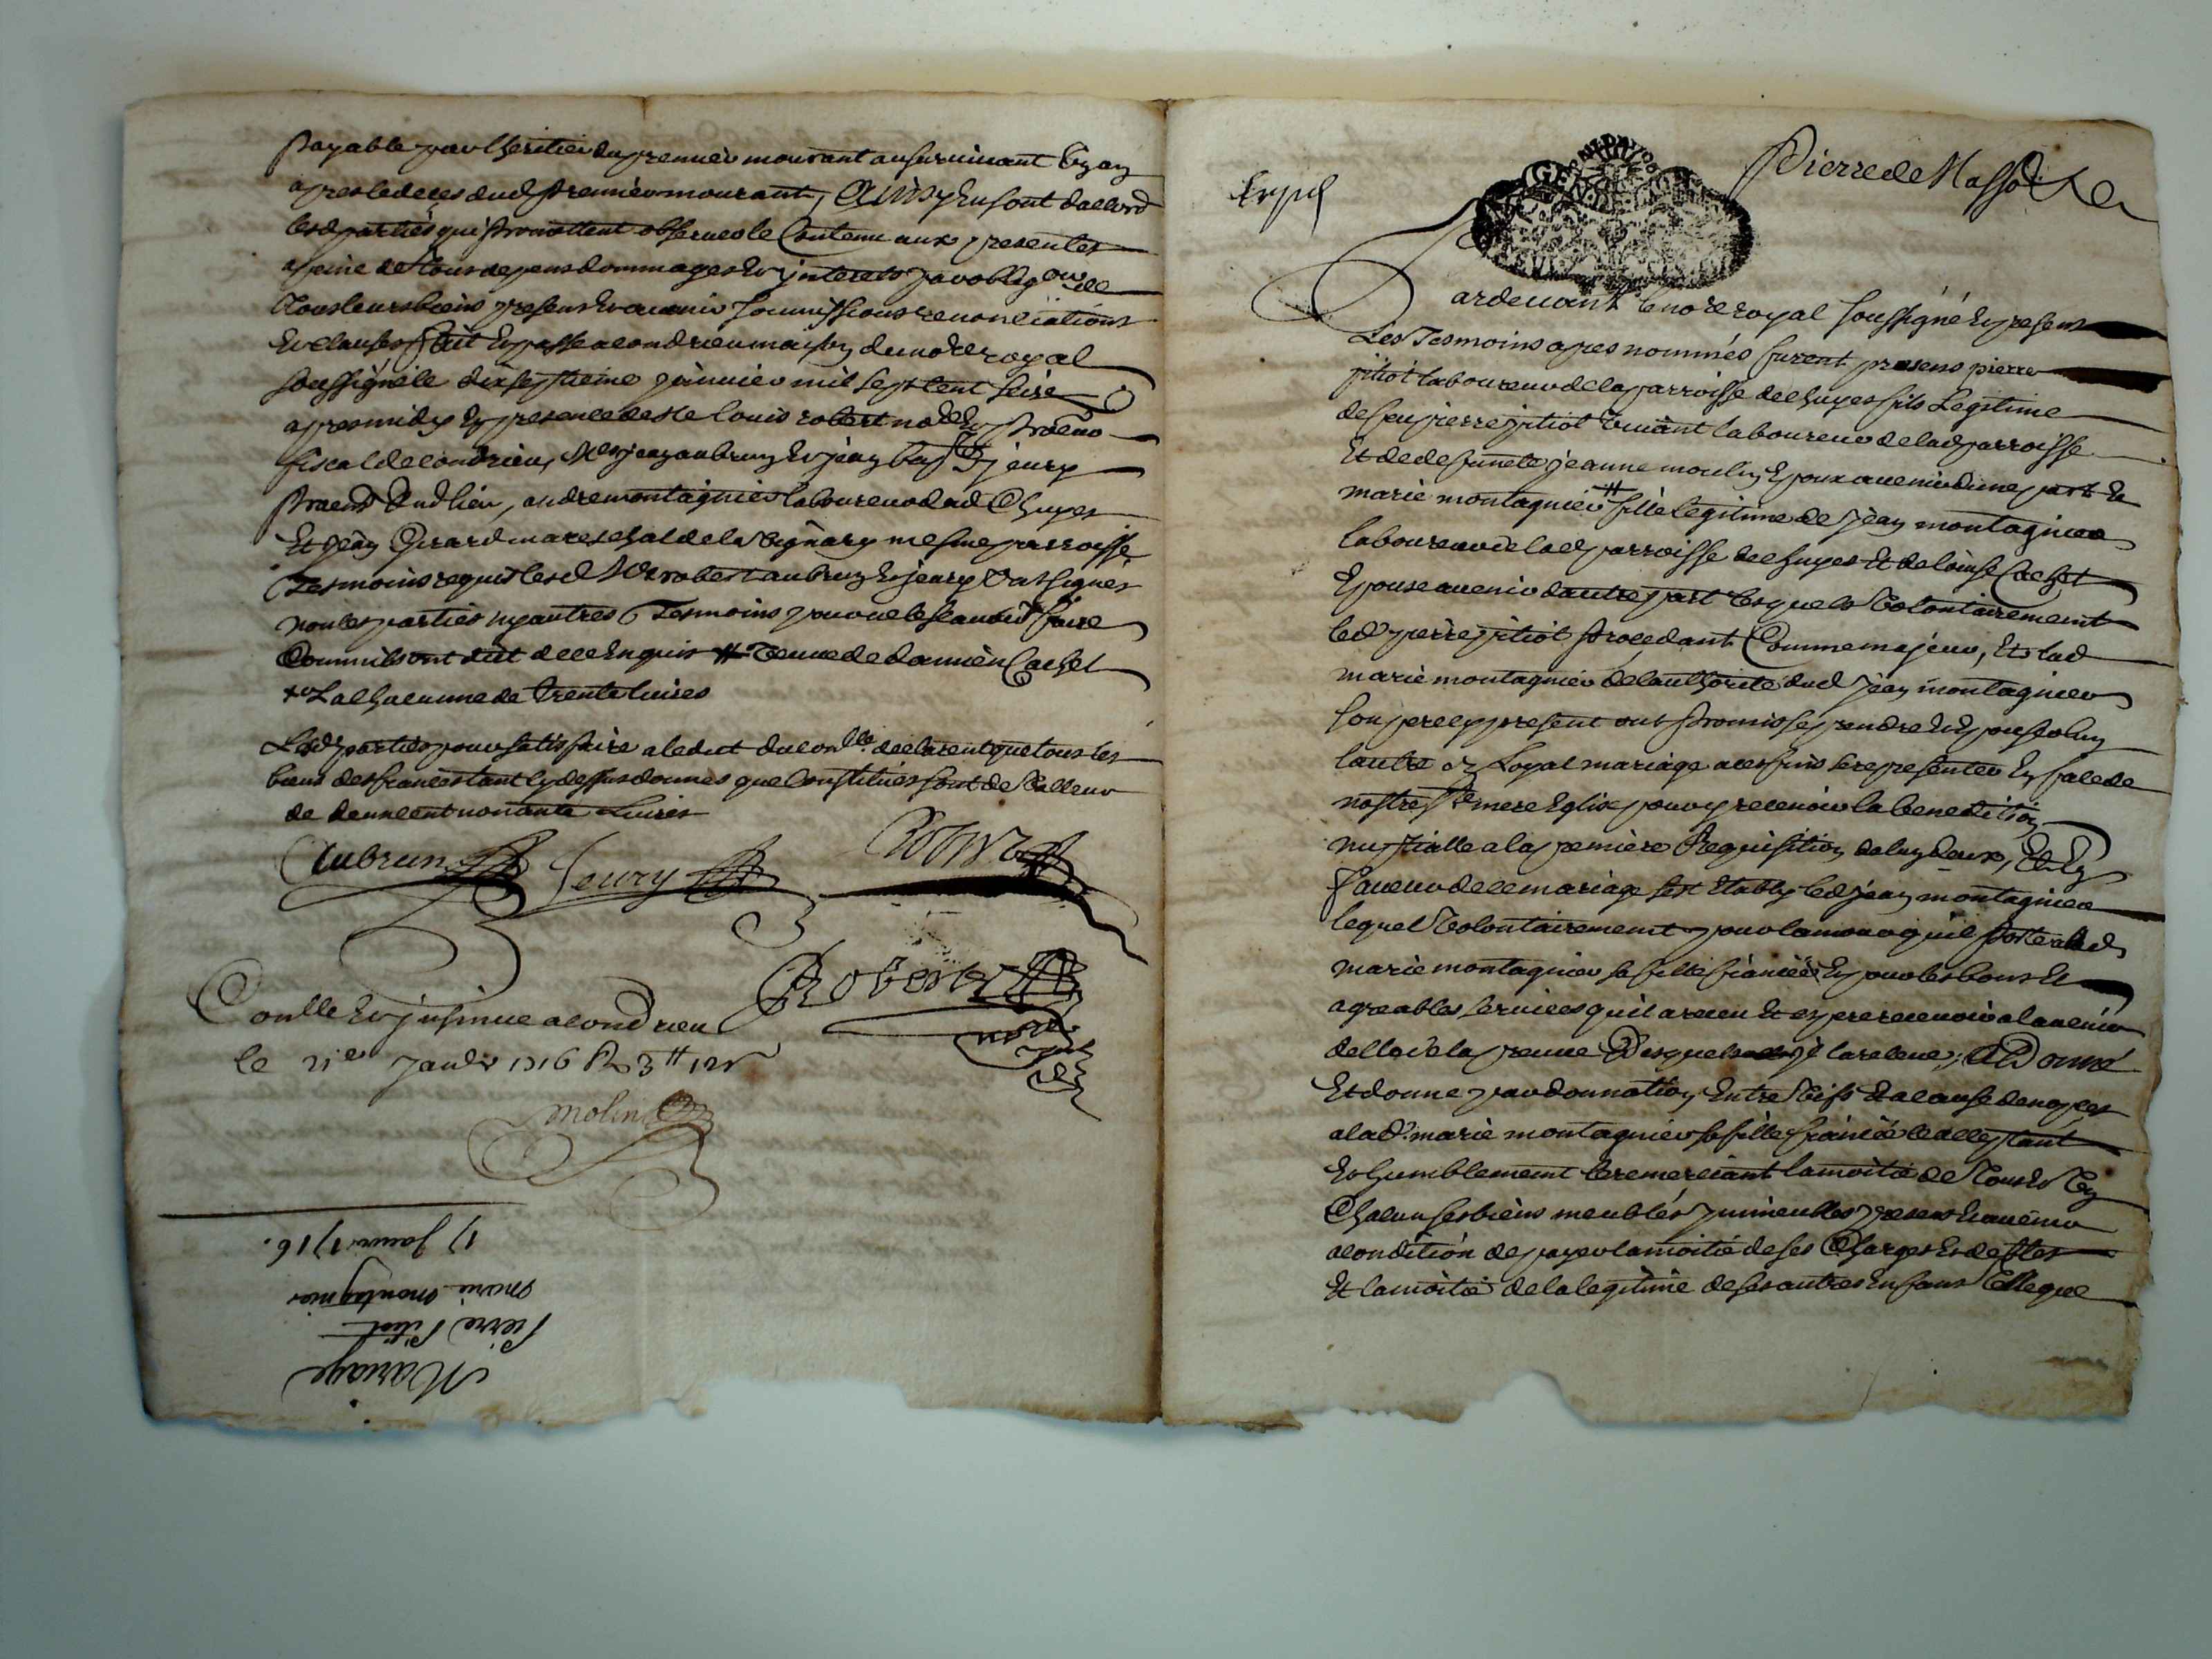 payable par lheritier du premier mourant au survivant Un an
apres le deces dud premier mourant, Ainsy En sont daccord
lesd parties qui promettent observer le Contenu aux presentes
a peine de tous depens dommages Et interets par obligon de
Tous leurs biens presens Et avenir soumissions renonciations
Et clauses fait Et passe a condrieu maison du nore royal
soussigné le dix septieme janvier mil sept cent seize
apres midy En presence de Me louis robert no
fiscal de condrieu, Mes jean aubrun Et jean bapt jeury
dud lieu, andre montagnier laboureur dud Chuyer
Et jean Girard mareschal de la mesme parroisse
Tesmoins requis lesd Mes robert aubrun Et jeury Ont signés
non les parties ny autres Tesmoins pour ne le scavoir faire
Comme ils ont dit de ce Enquis # Veuve de damien Cachet
+ Et a chacune de trente livres
Lesd parties pour satisfaire a ledit du conlle declarent que tous les
biens des fiancés tant cy dessus donnes que Constitués sont de Valleur
de deux cent nonante Livres
Aubrun Jeury Robert
Robert
nore
Conlle Et insinué a condrieu
le 21e Janvr 1716 R 3# 12s
molin
Mariage
Pierre Pitiot
marie montagnier
17 Janvier 1716.
Exped
GEN DE LYON
Pierre de Masso
Pardevant le nore royal soussigné En presence
Les Tesmoins apres nommés furent presens pierre
pitiot laboureur de la parroisse de Chuyer fils Legitime
de feu pierre pitiot Vivant laboureur de lad parroisse
Et de defuncte jeanne moulin Epoux avenir dune part Et
marie montagnier # fille legitime de jean montagnier
laboureur de lad parroisse de Chuyer Et de loüise Cachet
Epouse avenir dautre part lesquels Volontairement
led pierre pitiot procedant Comme majeur, Et lad
marie montagnier de lauthorité dud jean montagnier
son pere cy present ont promis se prendre Et Epouser lun
lautre en Loyal mariage a ces fins se representer En face de
nostre Ste mere Eglise pour y recevoir la benediction
nuptialle a la premiere Requisition de lun deux, Et En
faveur de ce mariage sest Etably led jean montagnier
lequel Volontairement pour lamour quil porte a lad
marie montagnier sa fille fiancée Et pour les bons Et
agreables services quil a receu Et espere recevoir a lavenir
delle de la preuve Desquels il la releve, A Donné
Et donne par donnation Entre Vifs Et a cause de nopces
a lad marie montagnier sa fille fiancée
Et humblement le remerciant la moitié de Tous Et Un
Chacun ses biens meubles immeubles presens Et avenir
a condition de payer la moitié de ses Charges Et debtes
Et la moitié de la legitime de ses autres Enfans Telle que